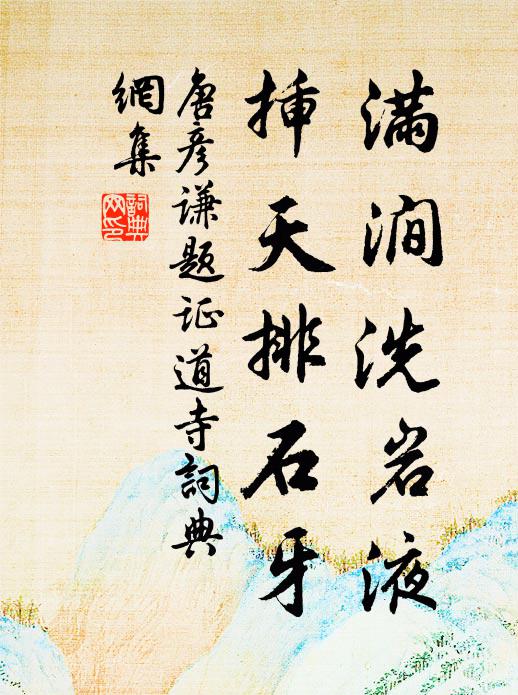 满涧洗岩液
插天排石牙
唐彦谦题证道寺词典
網集
詞典
网印